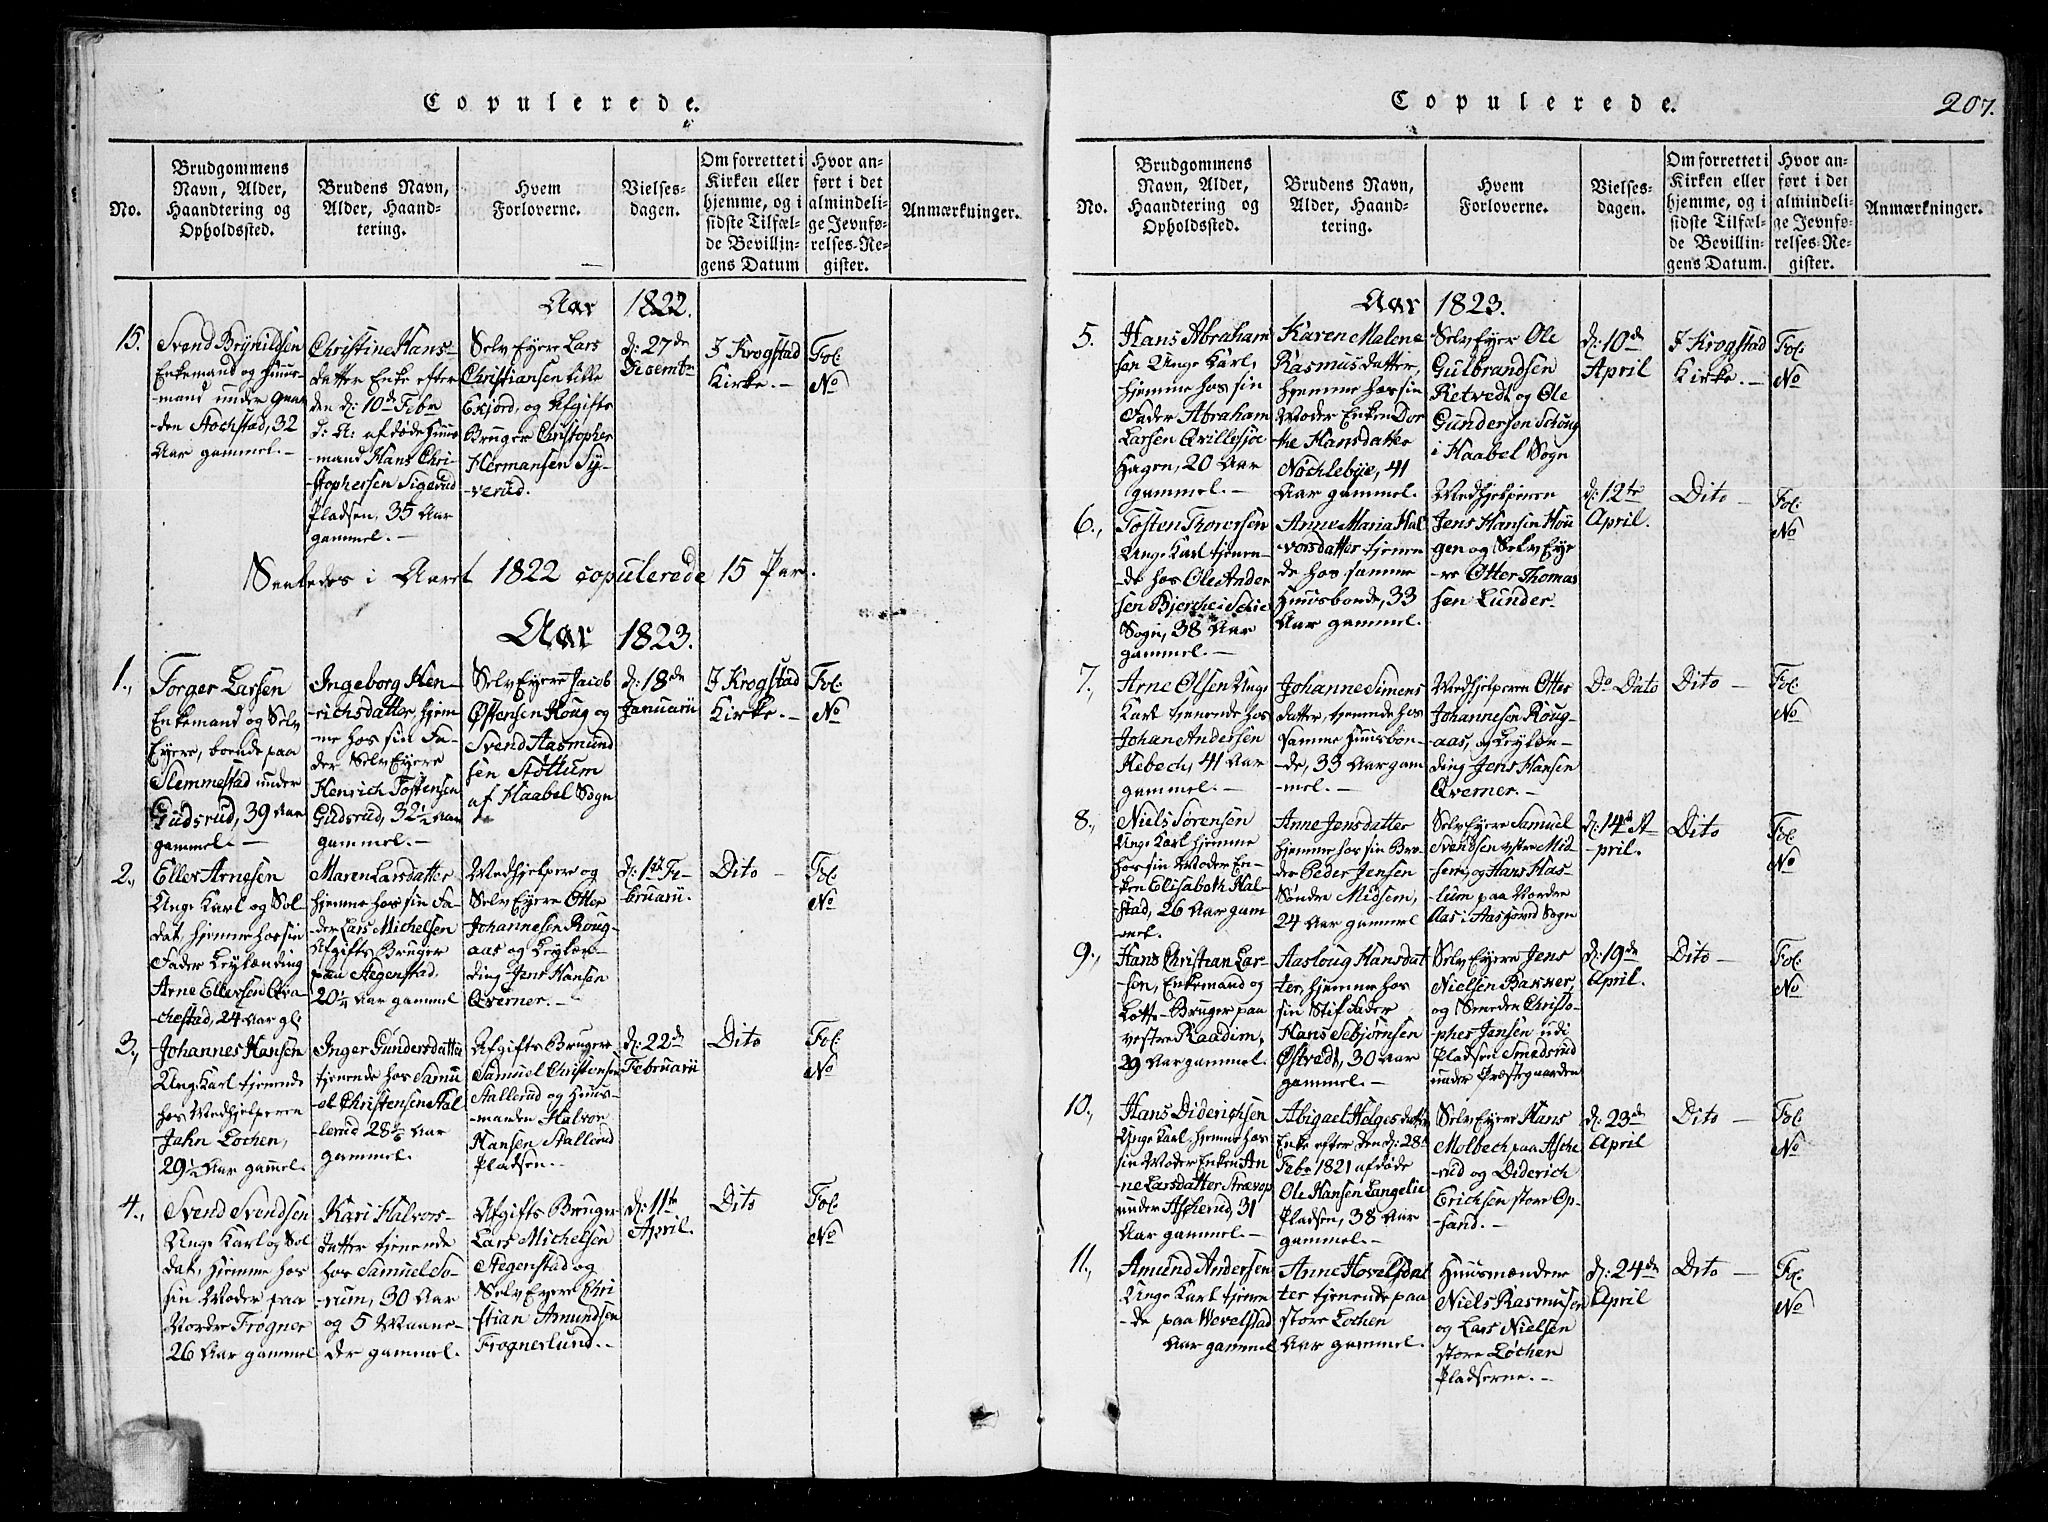 Copulerede.
No.
Brudgommens
Navn, Alder,
Haandtering og
Opholdssted.
Brudens Navn,
Alder, Haand-
tering.
Hvem
Forloverne.
Vielses-
dagen.
Om forrettet i
Kirken eller
hjemme, og i
sidste Tilfæl-
de Bevillin-
gens Datum
Hvor an-
ført i det
almindeli-
ge Jevnfø-
relses-Re-
gister.
Anmærkninger.
Aar 1822.
15.
Svend Brynildsen
Enkemand og Huus-
mand under
den Stochstad, 32
Aar gammel.-
Christine Hans-
datter Enke efter
den d: 10de Febr
d: A: afdøde Huus-
mand Hans Chri-
stophersen Sigerud
Pladsen, 35 Aar
gammel.-
Selv Eyere Lars
Christiansen lille
Exjord, og Afgifts
Bruger Christopher
Hermansen Sy-
verud.
d: 27de
Decembr
I Krogstad
Kirke.-
Fol:
No
Saaledes i Aaret 1822 copulerede 15 Par.
Aar 1823.
1.,
Torger Larsen
Enkemand og Selv
Eyere, boende paa
Slemmestad under
Gudsrud, 39 Aar
gammel.-
Ingeborg Hen-
richsdatter, hjem-
me hos sin Fa-
der Selv Eyere
Henrich Tostensen
Gudsrud, 32½ Aar
gammel.-
Selv Eyere Jacob
Østensen Houg og
Svend Aasmund
sen Stottum
af Haabel Sogn
d: 18de
Januarii
I Krogstad
Kirke.-
Fol:
No
2.,
Eller Arnesen
Unge Karl og Sol
dat, hjemme hos sin
Fader Leylænding
Arne Ellersen Qva-
chestad, 24 Aar gl:
Maren Larsdatter
hjemme hos sin Fa-
der Lars Michelsen
Afgifts Bruger
paa Stegenstad.
20¼ Aar gammel
Medhjelpere og
Selv Eyere Otter
Johannesen Roug-
aas og Leylæn-
ding Jens Hansen
Qverner.-
d: 1ste Fe-
bruarii.
Dito -
Fol:
No
3.,
Johannes Hansen
Unge Karl tjenende
hos Medhjelperen
Jahn Lochen,
29½ Aar gammel.
Inger Gundersdatter
tjenende hos Samu
el Christensen Stal
lerud 28½ Aar
gammel.
Afgifts Brugere
Samuel Christensen
Stallerud og Huus-
manden Halvor
Hansen Stallerud
Pladsen.-
d: 22de
Februarii
Dito
Fol:
No
4.,
Svend Svendsen
Unge Karl og Sol
dat, hjemme hos
sin Moder paa
Nordre Frogner
26 Aar gammel
Kari Halvors-
datter tjenende
hos Samuel So-
rum, 30 Aar
og 5 Maane-
der gammel.
Afgifts Bruger
Lars Michelsen
Stegenstad og
Selv Eyere Chri
stian Amundsen
Frognerlund.-
d: 11te
April.
Dito
Fol:
No
Copulerede.
207.
No.
Brudgommens
Navn, Alder,
Haandtering og
Opholdssted.
Brudens Navn,
Alder, Haand-
tering.
Hvem
Forloverne.
Vielses-
dagen.
Om forrettet i
Kirken eller
hjemme, og i
sidste Tilfæl-
de Bevillin-
gens Datum.
Hvor an-
ført i det
almindeli-
ge Jevnfø-
relses-Re-
gister.
Anmærkninger.
Aar 1823.
5.
Hans Abraham
sen Unge Karl,
hjemme hos sin
Fader Abraham
Larsen Qvillesjøe
Hagen, 20 Aar
gammel.-
Karen Malene
Rasmusdatter,
hjemme hos sin
Moder Enken Dor
the Hansdatter
Nøchlebye, 41
Aar gammel.
Selv Eyer Ole
Gulbrandsen
Retvedt og Ole
Gundersen Schoug
i Haabel Sogn
d: 10de
April
I Krogstad
Kirke.-
Fol:
No
6.,
Tosten Thorersen
Unge Karl tjenen-
de hos Ole Ander
sen Bjerche i Schie
Sogn, 38 Aar
gammel.-
Anne Maria Hal
vorsdatter tjenen
de hos samme
Huusbonde, 33
Aar gammel.
Medhjelperen
Jens Hansen Hou
gen og Selv Eye
re Otter Thomas
sen Lunder.
d: 12te
April.
Dito -
Fol:
No
7.,
Arne Olsen Unge
Karl tjenende hos
Johan Andersen
Kebech, 41 Aar
gammel.-
Johanne Simens
datter, tjenende hos
samme Huusbon-
de, 33 Aar gam
mel.-
Medhjelperen Otter
Johannesen Roug-
aas, og Leylæn-
ding Jens Hansen
Qverner.-
Do Dato
Dito -
Fol:
No
8.,
Niels Sørensen
Unge Karl hjemme
hos sin Moder En-
ken Elisabeth Hal-
stad, 26 Aar gam
mel.
Anne Jensdatter
hjemme hos sin Bro
der Peder Jensen
Søndre Midsem,
24 Aar gammel
Selv Eyere Samuel
Svendsen vestre Mid-
sem, og Hans Has-
lum paa Nordre
Aas i Aas Sogn
d: 14de A
pril.
Dito
Fol:
No
9.,
Hans Christian Lar-
sen, Enkemand og
Lotts-Bruger paa
vestre Raadim,
29 Aar gammel.
Aasloug Hansdat
ter, hjemme hos
sin Stif Fader
Hans Sebjørnsen
Østvedt, 30 Aar
gammel.-
Selv Eyere Jens
Nielsen Bakker,
og Smeden Christo-
pher Jansen udi
Pladsen Smedsrud
under Præstegaarden
d: 19de
April.
Dito -
Fol:
No
10.,
Hans Diderichsen
Unge Karl, hjemme hos
sin Moder Enken An
ne Larsdatter
under Ascherud, 31
Aar gammel.-
Abigael Helgesdatter
Enke efter den d: 28de
Febr 1821 afdøde
Ole Hansen Langelie
Pladsen, 38 Aar
gammel.-
Selv Eyere Hans
Molbech paa Asche
rud og Diderich
Erichsen store Op-
sand.-
d: 23de
April
Dito -
Fol:
No
11.,
Amund Andersen
Unge Karl tjenen
de paa Wevelstad
Aar gammel
Anne Hovelsdat
ter tjenende paa
store Lochen
Aar gammel.
Huusmændene
Niels Rasmusen
og Lars Nielsen
store Løchen
Pladserne.-
d: 24de
April
Dito -
Fol:
No